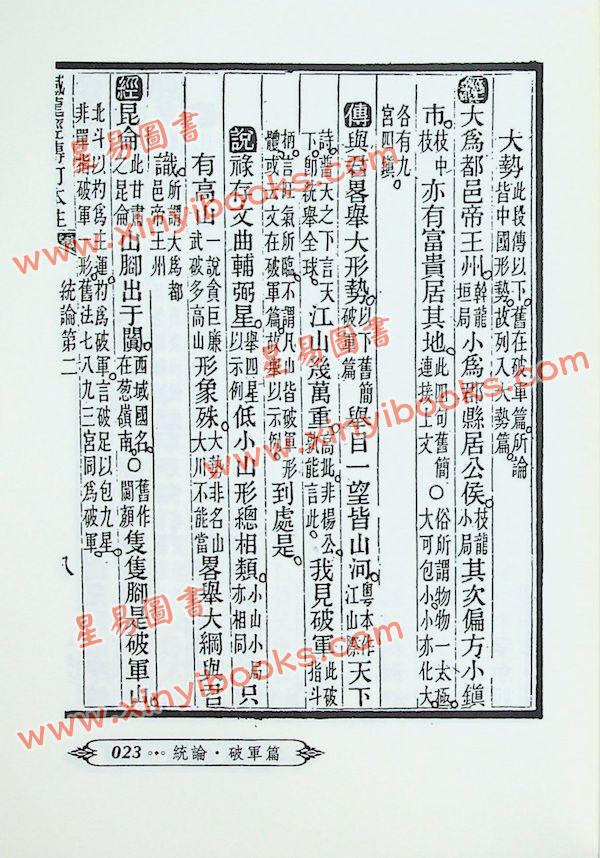 大勢 此段傳以下。舊在破軍篇。所論皆中國形勢。故列入大勢篇。
經 大爲都邑帝王州。幹龍垣局 小爲郡縣居公侯。枝龍小局 其次偏方小鎮
市。枝中枝 亦有富貴居其地。此四句舊簡連接上文 ○ 俗所謂物物一太極。大可包小。小亦化大。
各有九宮四鎮。
傳 與君畧舉大形勢。以下舊簡破軍篇 舉目一望皆山河。粵本作江山際 天下
詩普天之下。言天下。卽就舉全球。 江山幾萬重。此非楊公孰能言此。 我見破軍 此破指斗
柄。言旺氣所臨。不謂凡山皆破軍形體 文在破軍篇。故舉以示例 到處是。
說 祿存文曲輔弼星。舉四星以示例 低小山形總相類。小山小局亦相同 只
有高山 一說貪巨廉武破多高山 形象殊。大勢非名山大川不能當 畧舉大綱與君
識。所謂大爲都邑帝王州
經 昆侖 此甘肅之昆侖 山腳出于闐。西域國名。在葱嶺南。○ 舊作闐顏 隻隻腳是破軍山。
北斗以杓爲主運。杓爲破軍。言破足以包九星。非單指破軍形。舊法七八九三宮同爲破軍。
撼龍經傳訂本注 統論第二 八
023 統論·破軍篇
星易圖書
www.xinyibooks.com
星易圖書
www.xinyibooks.com
星易圖書
www.xinyibooks.com
星易圖書
www.xinyibooks.com